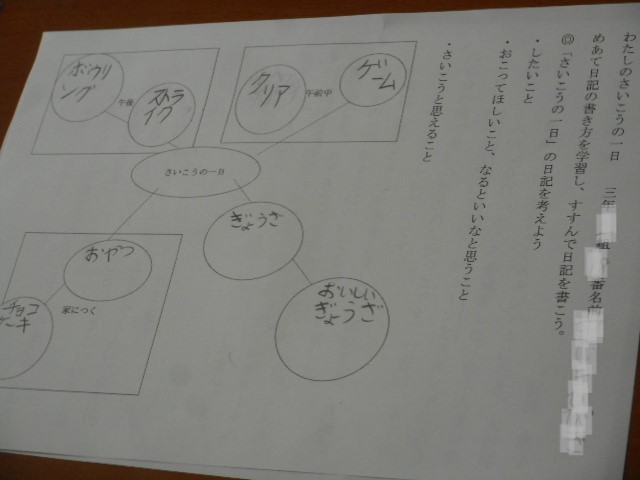 わたしのさいこうの一日　三年　組　番名前
めあて日記の書き方を学習し、すすんで日記を書こう。
◎「さいこうの一日」の日記を考えよう
・したいこと
・おこってほしいこと、なるといいなと思うこと
・さいこうと思えること
ゲーム
午前中
クリア
ボウリ
ング
午後
ストラ
イク
さいこうの一日
ぎょうざ
おいしい
ぎょうざ
おやつ
家につく
チョコ
ケーキ